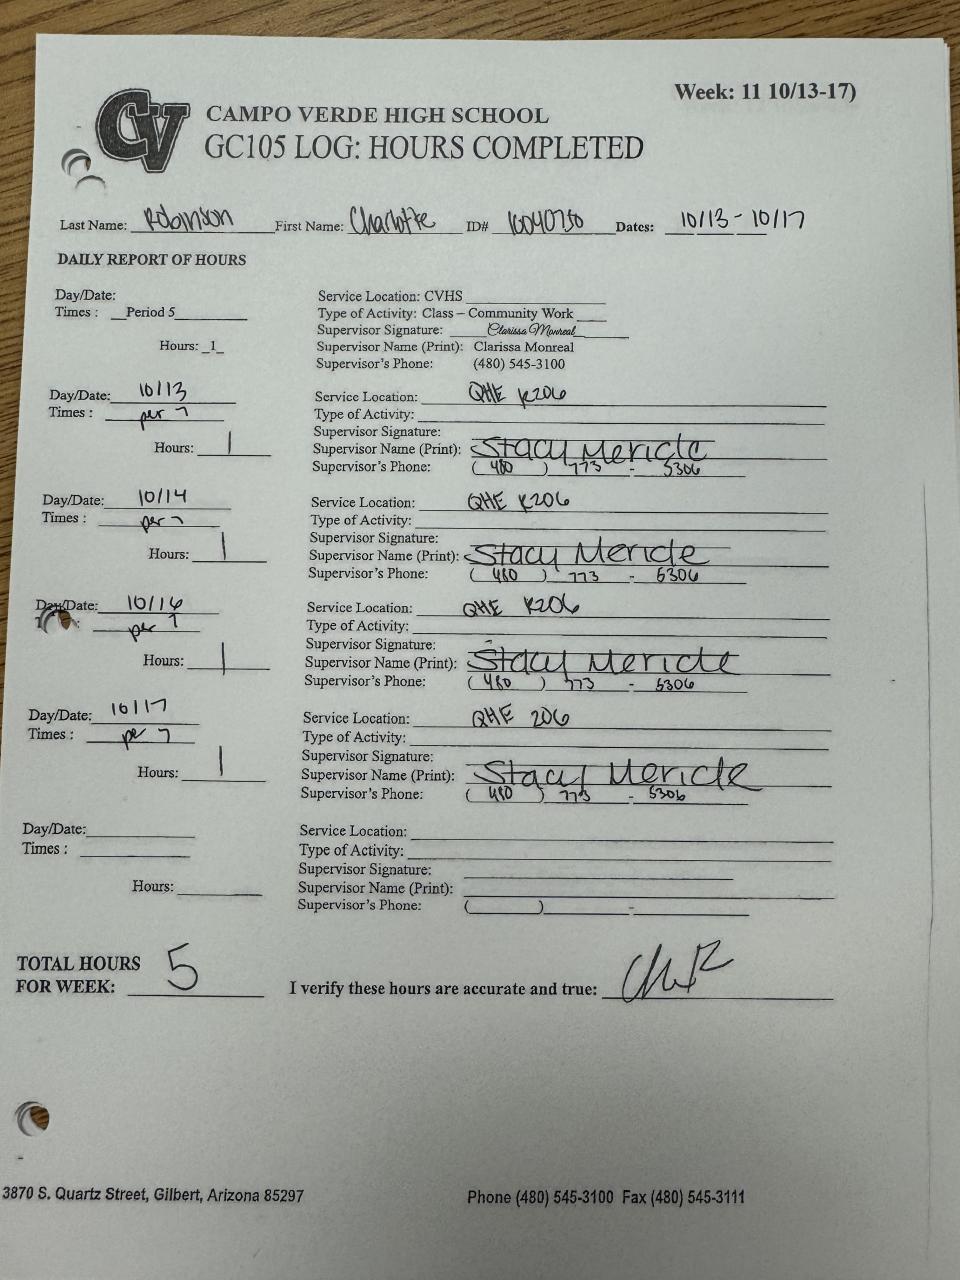 Week: 11 10/13-17)
CV
CAMPO VERDE HIGH SCHOOL
GC105 LOG: HOURS COMPLETED
Last Name: Robinson First Name: Charlotte ID# 10040750 Dates: 10/13 - 10/17
DAILY REPORT OF HOURS
Day/Date:
Times : Period 5
Hours: 1
Service Location: CVHS
Type of Activity: Class – Community Work
Supervisor Signature: Clarissa Monreal
Supervisor Name (Print): Clarissa Monreal
Supervisor's Phone: (480) 545-3100
Day/Date: 10/13
Times : per 7
Hours: 1
Service Location: QHE K206
Type of Activity:
Supervisor Signature:
Supervisor Name (Print): Stacy Mericle
Supervisor's Phone: (480) 773 - 5306
Day/Date: 10/14
Times : per 7
Hours: 1
Service Location: QHE K206
Type of Activity:
Supervisor Signature:
Supervisor Name (Print): Stacy Mericle
Supervisor's Phone: (480) 773 - 5306
Day/Date: 10/16
per 7
Hours: 1
Service Location: QHE K206
Type of Activity:
Supervisor Signature:
Supervisor Name (Print): Stacy Mericle
Supervisor's Phone: (480) 773 - 5306
Day/Date: 10/17
Times : per 7
Hours: 1
Service Location: QHE 206
Type of Activity:
Supervisor Signature:
Supervisor Name (Print): Stacy Mericle
Supervisor's Phone: (480) 773 - 5306
Day/Date:
Times :
Hours:
Service Location:
Type of Activity:
Supervisor Signature:
Supervisor Name (Print):
Supervisor's Phone: ( ) -
TOTAL HOURS
FOR WEEK: 5
I verify these hours are accurate and true:
3870 S. Quartz Street, Gilbert, Arizona 85297
Phone (480) 545-3100 Fax (480) 545-3111